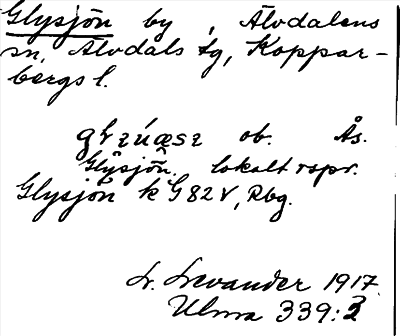 Glysjön by, Älvdalens
sn, Älvdals tg, Koppar-
bergs l.
ob. Ås.
Glysjön. lokalt rspr.
Glysjön k G 82 V, Rbg.
L. Levander 1917.
Ulma 339:3